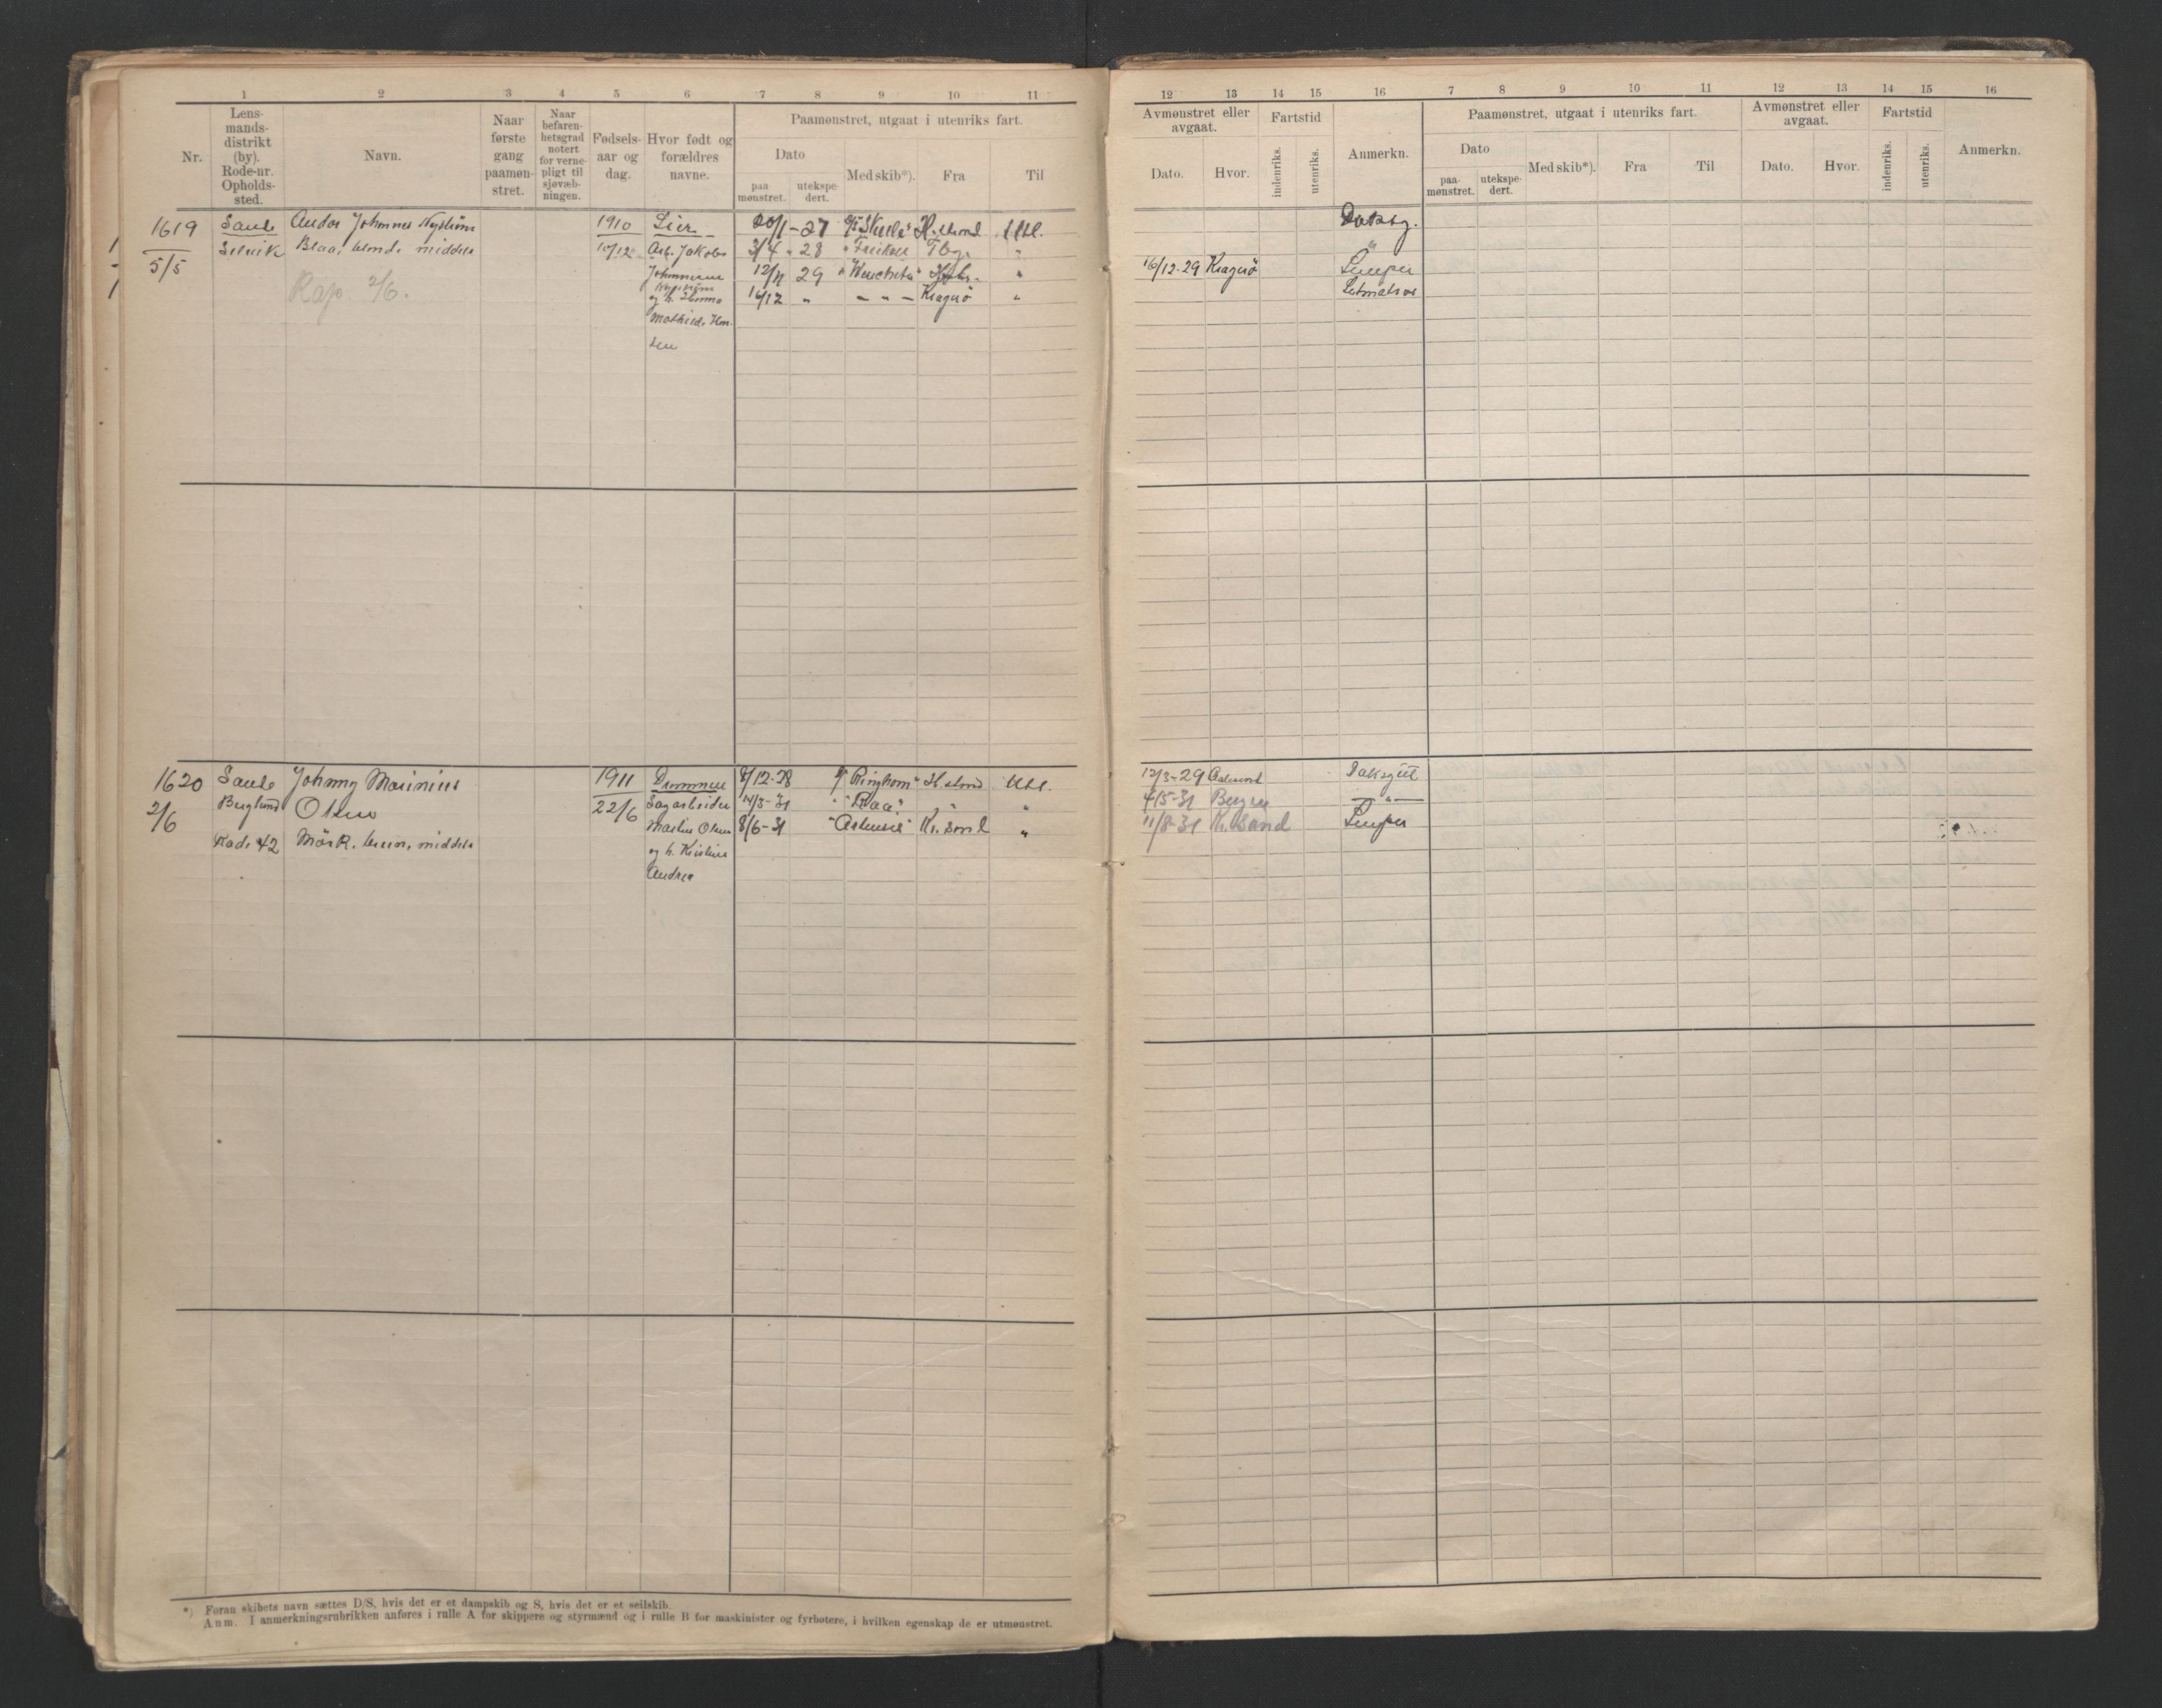 1 2 3 4 5 6 7 8 9 10 11
Nr.
Lens-
mands-
distrikt
(by).
Rode-nr.
Opholds-
sted.
Navn.
Naar
første
gang
paamøn-
stret.
Naar
befaren-
hetsgrad
notert
for verne-
pligt til
sjøvæb-
ningen.
Fødsels-
aar og
dag.
Hvor født og
forældres
navne.
Paamønstret, utgaat i utenriks fart.
Dato
paa
mønstret.
utekspe-
dert.
Med skib*).
Fra
Til
1619 Sande Andor Johannes Nyström 1910 Lier 20/1-27 H.strand Utl.
5/5 Selvik Blaa, blond, middels 10/12 Arb. Jakob 3/4 - 28 Tbg. "
Johannesen 12/11 29 "
Nyström
Rap. 2/6.
og h. 16/12 " - - - Kragerö "
Mathilde
sen
1620 Sande Johnny Marinius 1911 Drammen 8/12-28 "Ringhorn" H.strand Utl.
2/6 Berglund Olsen 22/6 Sagarbeider 14/3-31 "Raa" " "
Martin Olsen 8/6-31 Kr.sand "
Rode 42 Mörk, brun, middels
og h. Kristine
Andrea
*) Foran skibets navn sættes D/S, hvis det er et dampskib og S, hvis det er et seilskib.
Anm. I anmerkningsrubrikken anføres i rulle A for skippere og styrmænd og i rulle B for maskinister og fyrbøtere, i hvilken egenskap de er utmønstret.
12 13 14 15 16 7 8 9 10 11 12 13 14 15 16
Avmønstret eller
avgaat.
Dato.
Hvor.
Fartstid
indenriks.
utenriks.
Anmerkn.
Paamønstret, utgaat i utenriks fart.
Dato
paa-
mønstret.
utekspe-
dert.
Med skib*).
Fra
Til
Avmønstret eller
avgaat.
Dato.
Hvor.
Fartstid
indenriks.
utenriks.
Anmerkn.
Dæksg.
"
16/12-29 Kragerö Lemper
Letmatros
12/3-29 Dæksgut
4/5-31 Bergen - " -
11/8-31 K.sand Lemper